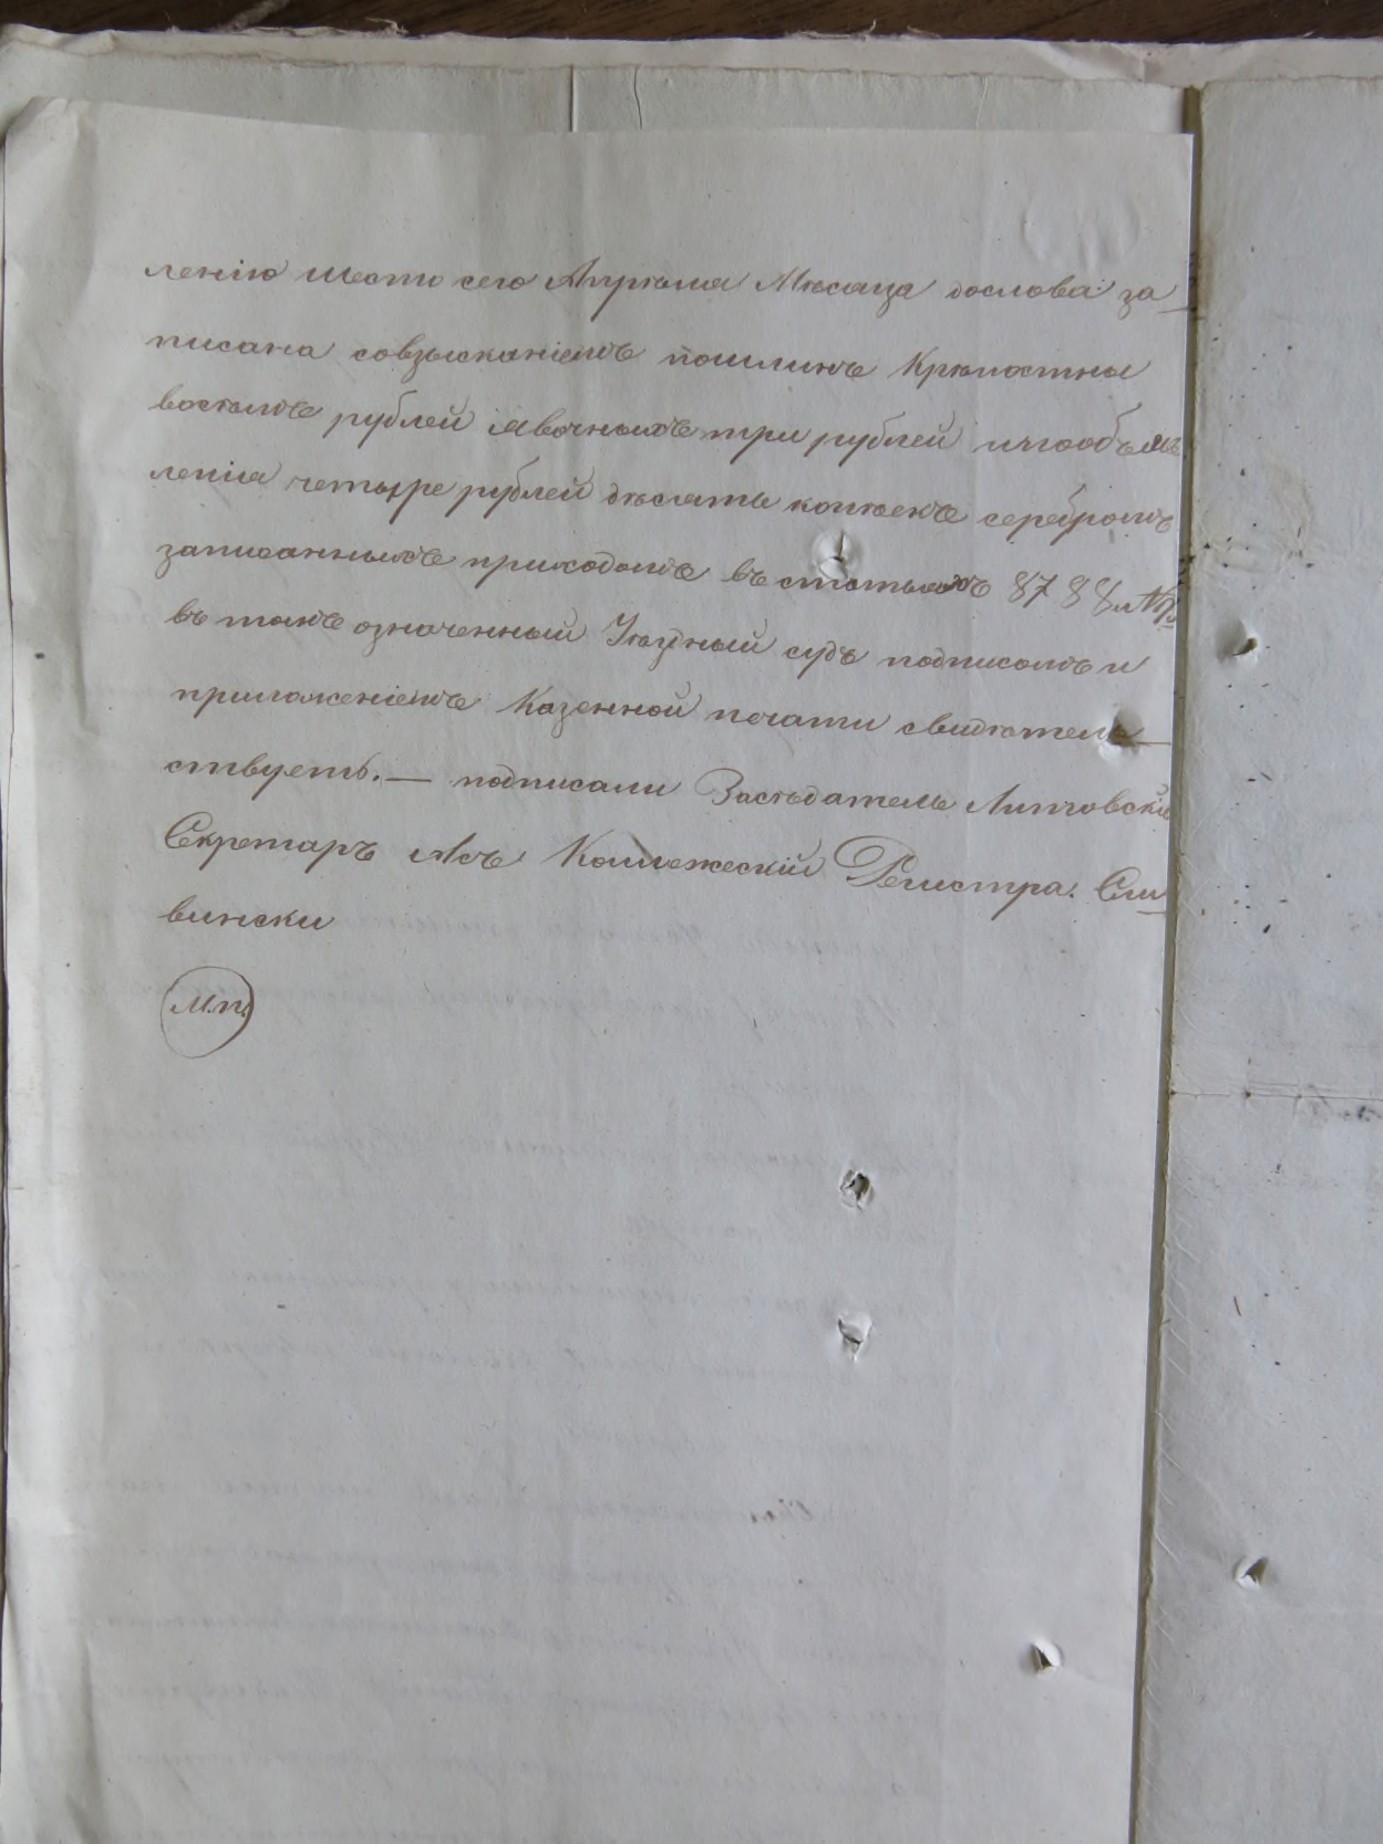 ленію шести сего Апрѣля Мѣсяца дослова за
писана совзысканіемъ пошлинъ Крѣпостны
рублей явочныхъ три рублей
ленія четыре рублей дѣсять копѣекъ серебромъ
записанныхъ приходомъ въ статьяхъ 87 88 и
въ томъ означенный Уѣздный судъ подписомъ и
приложеніемъ Казенной печати свидѣтель
ствуетъ. — подписали Засѣдатель Литовскій
Секретарь Коллежескій Регистра. Сли
вински
М.п.